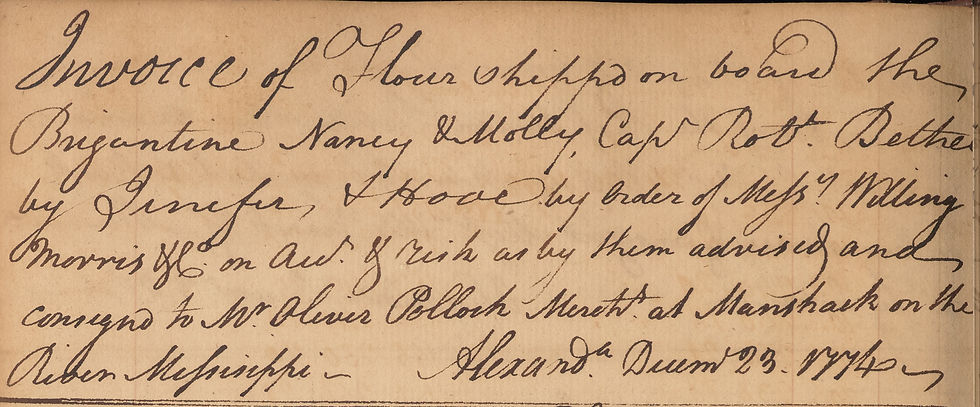 Invoice of Flour shippd on board the
Brigantine Nancy & Molly, Capt Robt. Bethel
by Jenifer & Hooe by order of Messrs Willing
Morris & Co. on Acct. & risk as by them advised and
consignd to Mr. Oliver Pollock Mercht. at Manshack on the
River Messisippi - Alexanda. Decemr 23. 1774